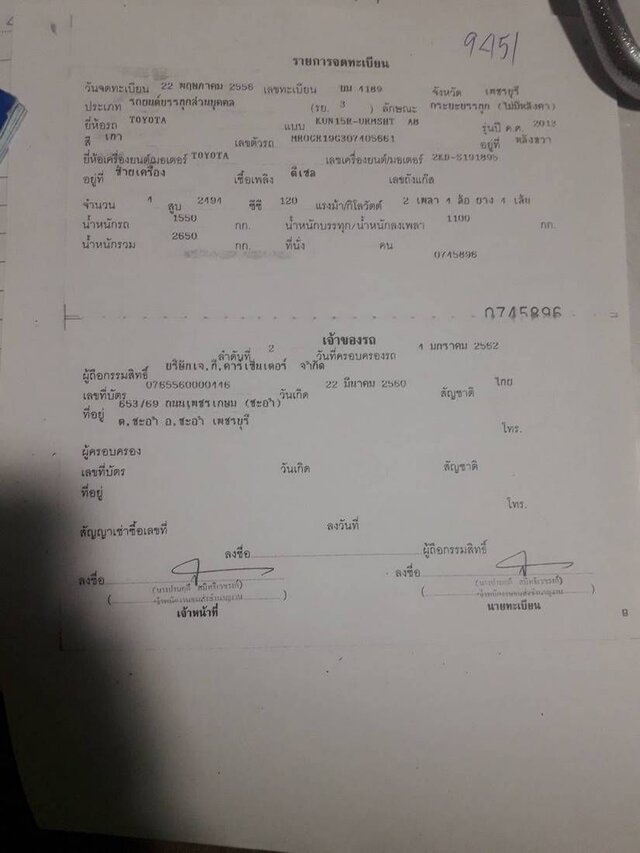 9451
รายการจดทะเบียน
วันจดทะเบียน 22 พฤษภาคม 2556 เลขทะเบียน บม 4189 จังหวัด เพชรบุรี
ประเภท รถยนต์บรรทุกส่วนบุคคล (รย. 3 ) ลักษณะ กระบะบรรทุก (ไม่มีหลังคา)
ยี่ห้อรถ TOYOTA แบบ KUN15R-URMSHT AB รุ่นปี ค.ศ. 2013
สี เทา เลขตัวรถ MR0GR19G307405661 อยู่ที่ หลังขวา
ยี่ห้อเครื่องยนต์/มอเตอร์ TOYOTA เลขเครื่องยนต์/มอเตอร์ 2KD-S191895
อยู่ที่ ซ้ายเครื่อง เชื้อเพลิง ดีเซล เลขถังแก๊ส
จำนวน 4 สูบ 2494 ซีซี 120 แรงม้า/กิโลวัตต์ 2 เพลา 4 ล้อ ยาง 4 เส้น
น้ำหนักรถ 1550 กก. น้ำหนักบรรทุก/น้ำหนักลงเพลา 1100 กก.
น้ำหนักรวม 2650 กก. ที่นั่ง คน
0745896
0745896
เจ้าของรถ
ลำดับที่ 2 วันที่ครอบครองรถ 4 มกราคม 2562
ผู้ถือกรรมสิทธิ์ บริษัทเจ.ที.คาร์เซ็นเตอร์ จำกัด
เลขที่บัตร 0765560000446 วันเกิด 22 มีนาคม 2560 สัญชาติ ไทย
ที่อยู่ 653/69 ถนนเพชรเกษม (ชะอำ)
ต.ชะอำ อ.ชะอำ เพชรบุรี โทร.
ผู้ครอบครอง
เลขที่บัตร วันเกิด สัญชาติ
ที่อยู่
โทร.
สัญญาเช่าซื้อเลขที่ ลงวันที่
ลงชื่อ ผู้ถือกรรมสิทธิ์
ลงชื่อ ลงชื่อ
เจ้าหน้าที่ นายทะเบียน
8